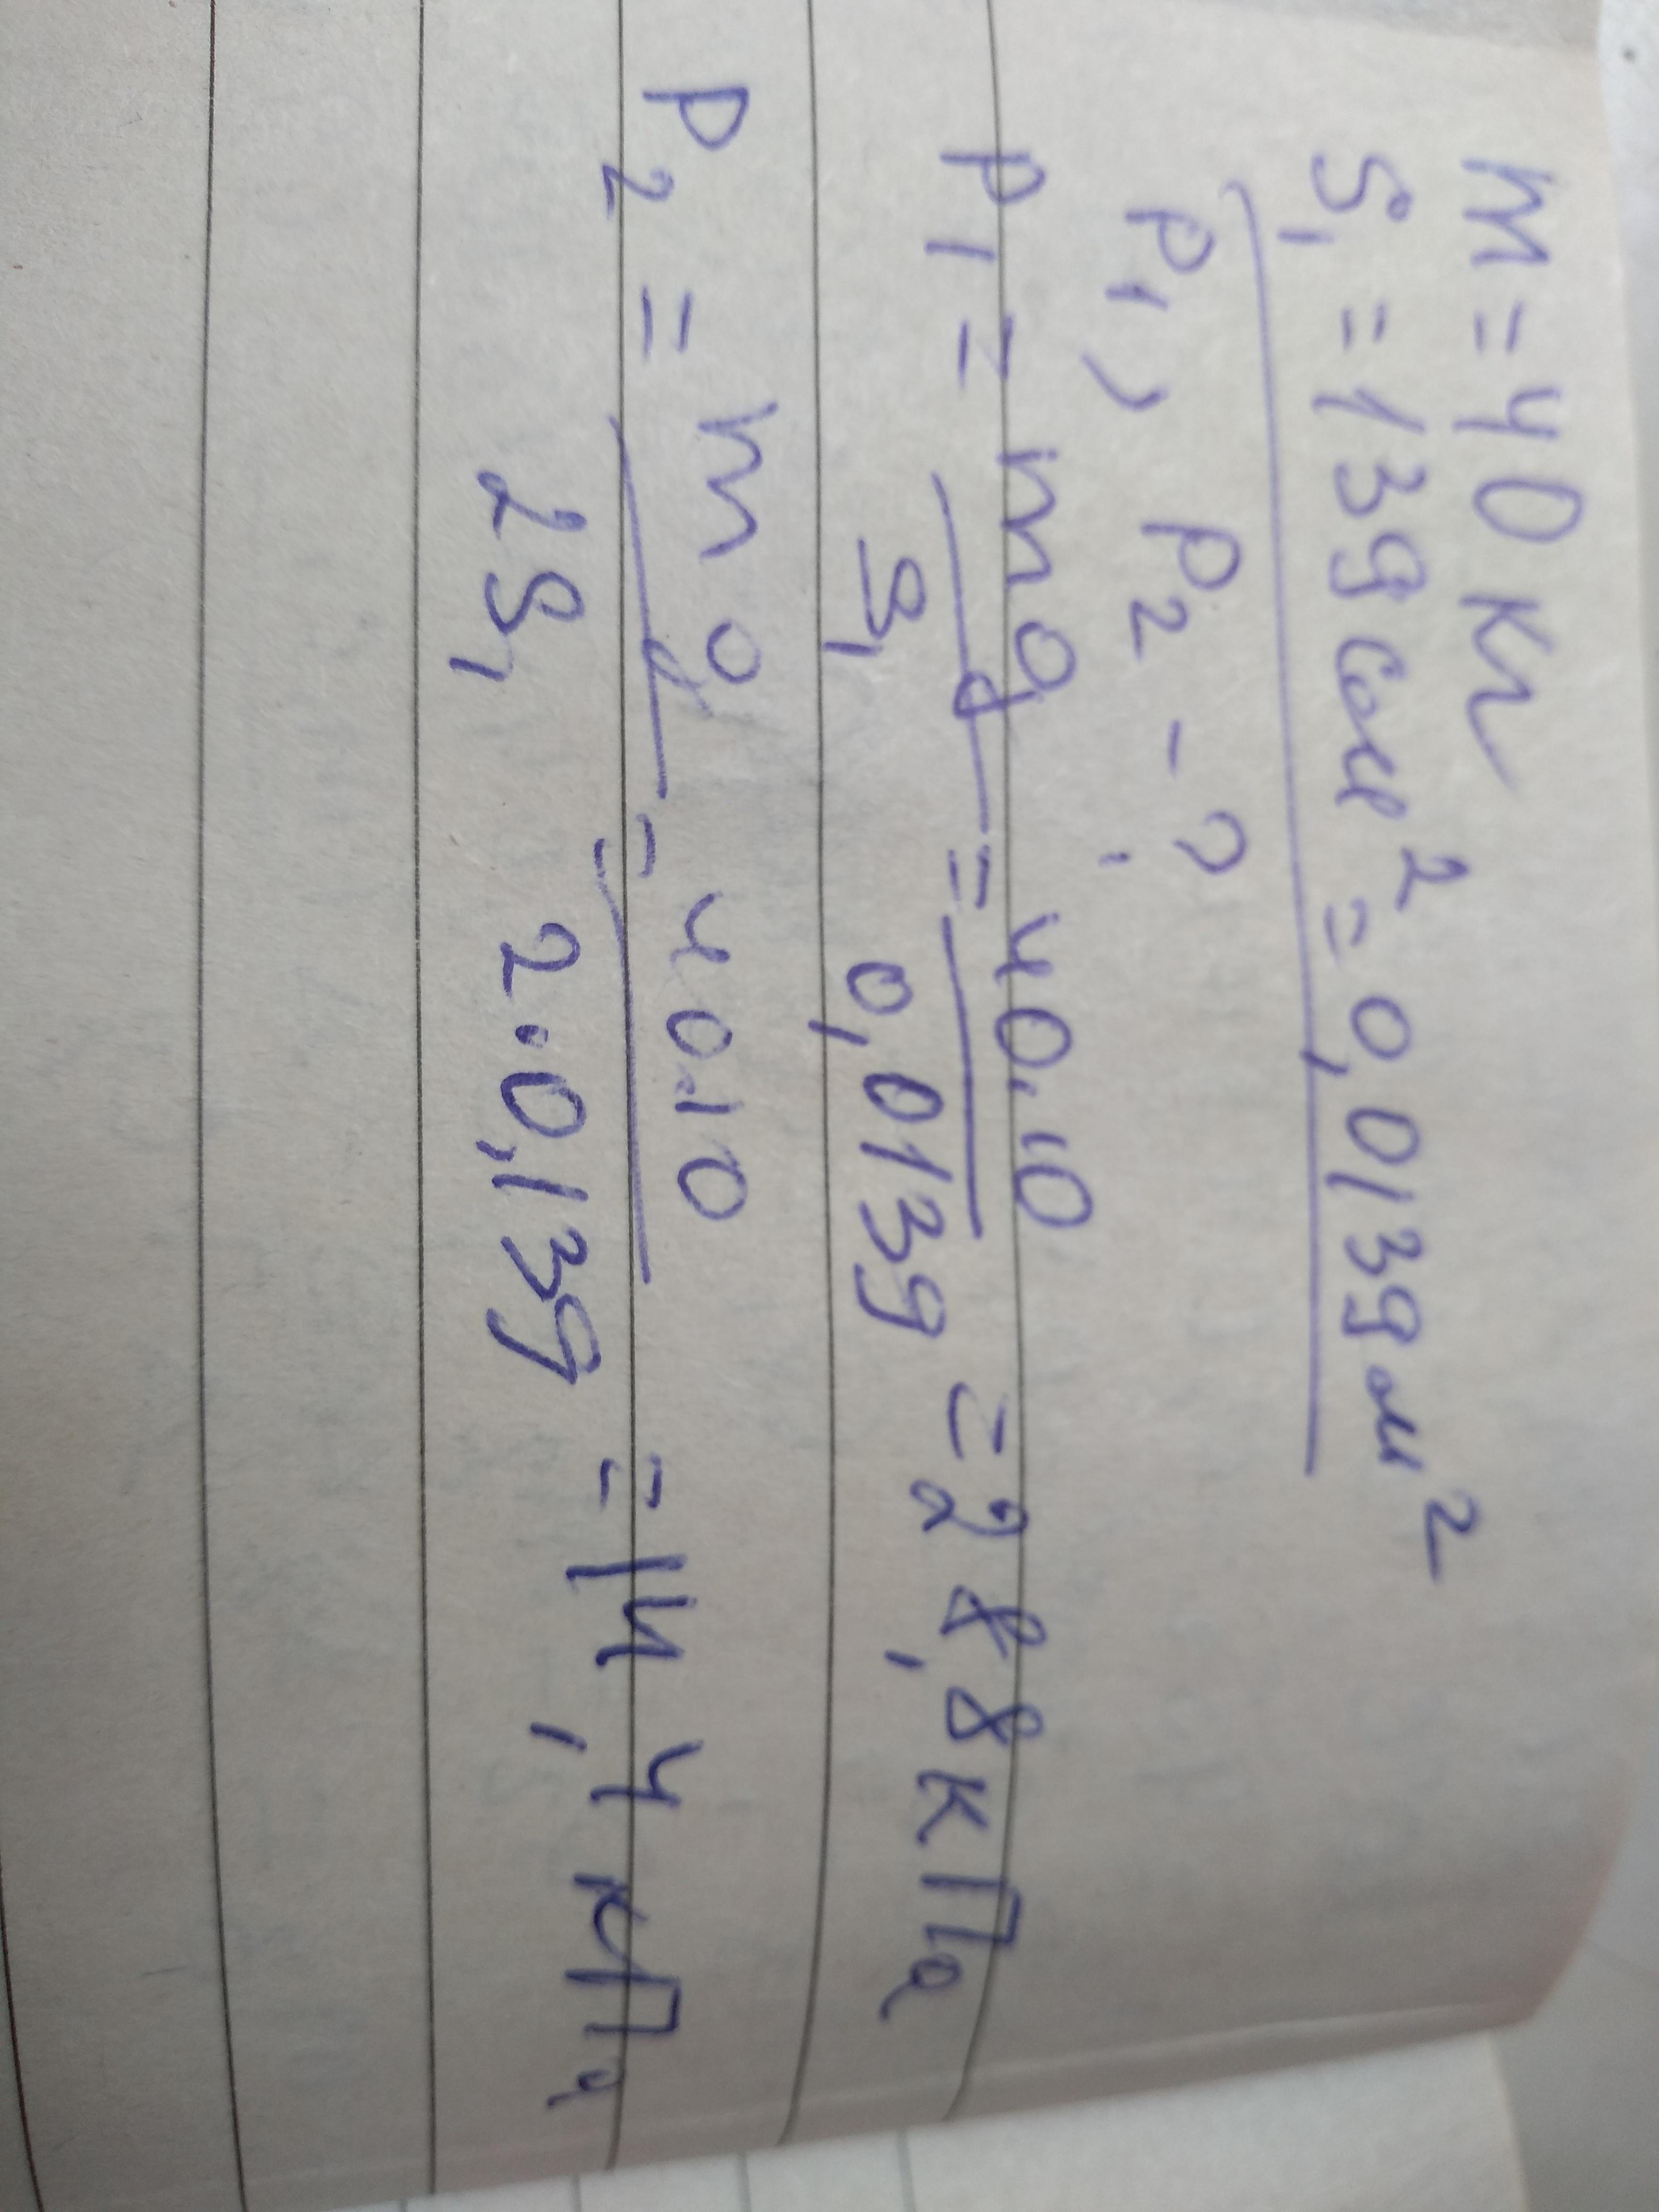 m = 40 кг
S₁ = 139 см² = 0,0139 м²
P₁, P₂ - ?
P₁ = mg/S₁ = 40.10/0,0139 = 28,8 кПа
P₂ = mg/2S₁ = 40.10/2·0,139 = 14,4 кПа